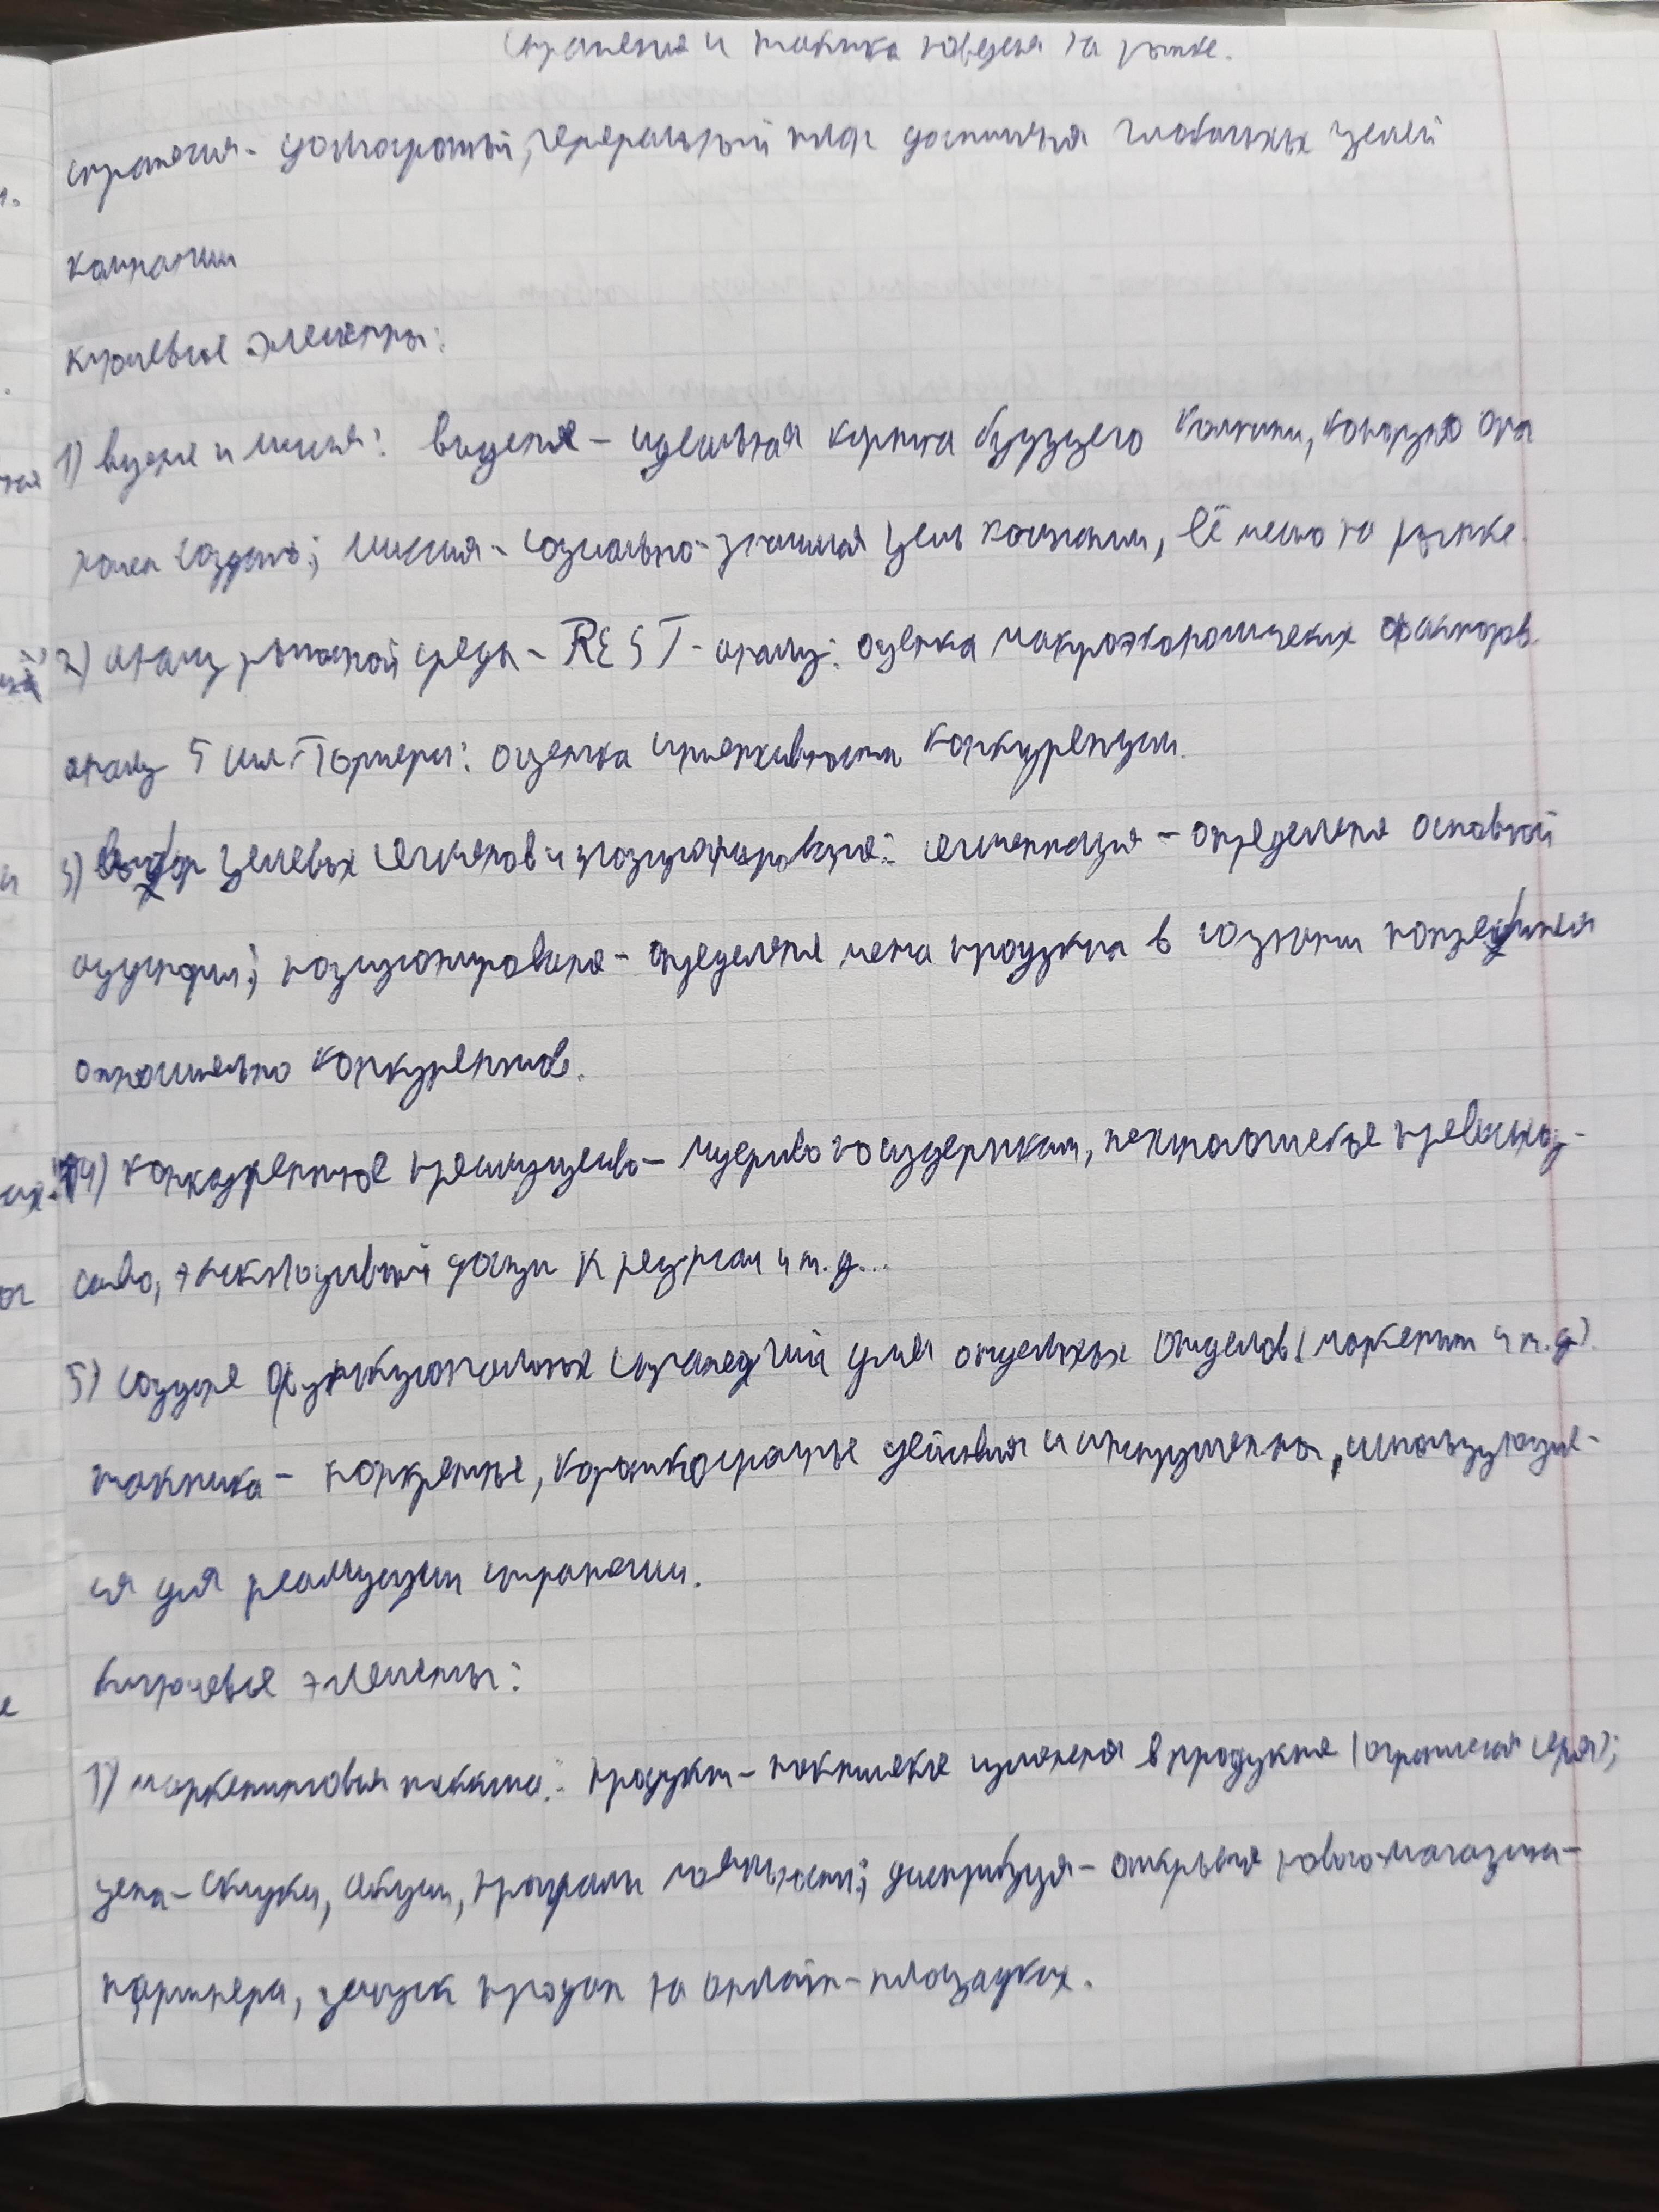 Стратегия и тактика поведеня на рынке.
стратегия - долгосрочный, генеральный план достиженя глобальных целей
компании
ключевые элементы:
1) видене и миссия: видение - идеальная картина будущего компании, которую она
хочет создать; миссия - социально-значимая цель компании, её место на рынке.
2) анализ рыночной среды - PEST - анализ: оценка макроэкономических факторов
анализ 5 сил Портера: оценка интенсивности конкуренции.
3) выбор целевых сегментов и позиционирование: сегментация - определение основной
аудитории; позиционирование - определене места продукта в сознании потребителя
относительно конкурентов.
4) конкурентное преимущество - лидерство по издержкам, технологическое превосход-
ство, эксклюзивный доступ к ресурсам и т.д...
5) создане функциональных стратегий для отдельных отделов (маркетинг и т.д).
тактика - конкретные, краткосрочные действия и инструменты, использующие-
ся для реализации стратегии.
ключевые элементы:
1) маркетинговая тактика: продукт - тактические изменения в продукте (ограниченая серия);
цена - скидки, акции, программы лояльности; дистрибуция - открытие нового магазина-
партнера, запуск продаж на онлайн-площадках.